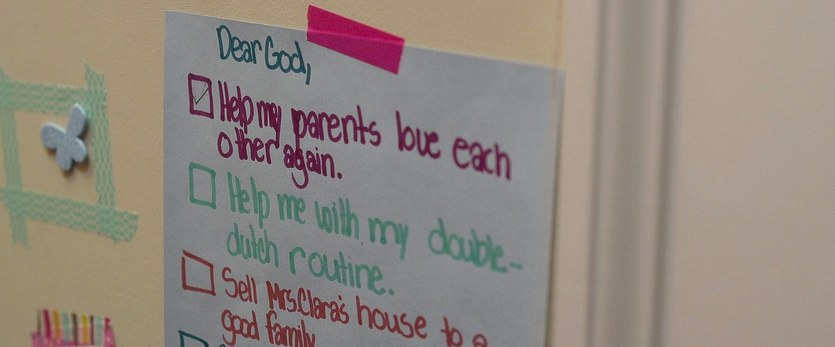 Dear God,
Help my parents love each
other again.
Help me with my double-
dutch routine.
Sell Mrs. Clara's house to a
good family